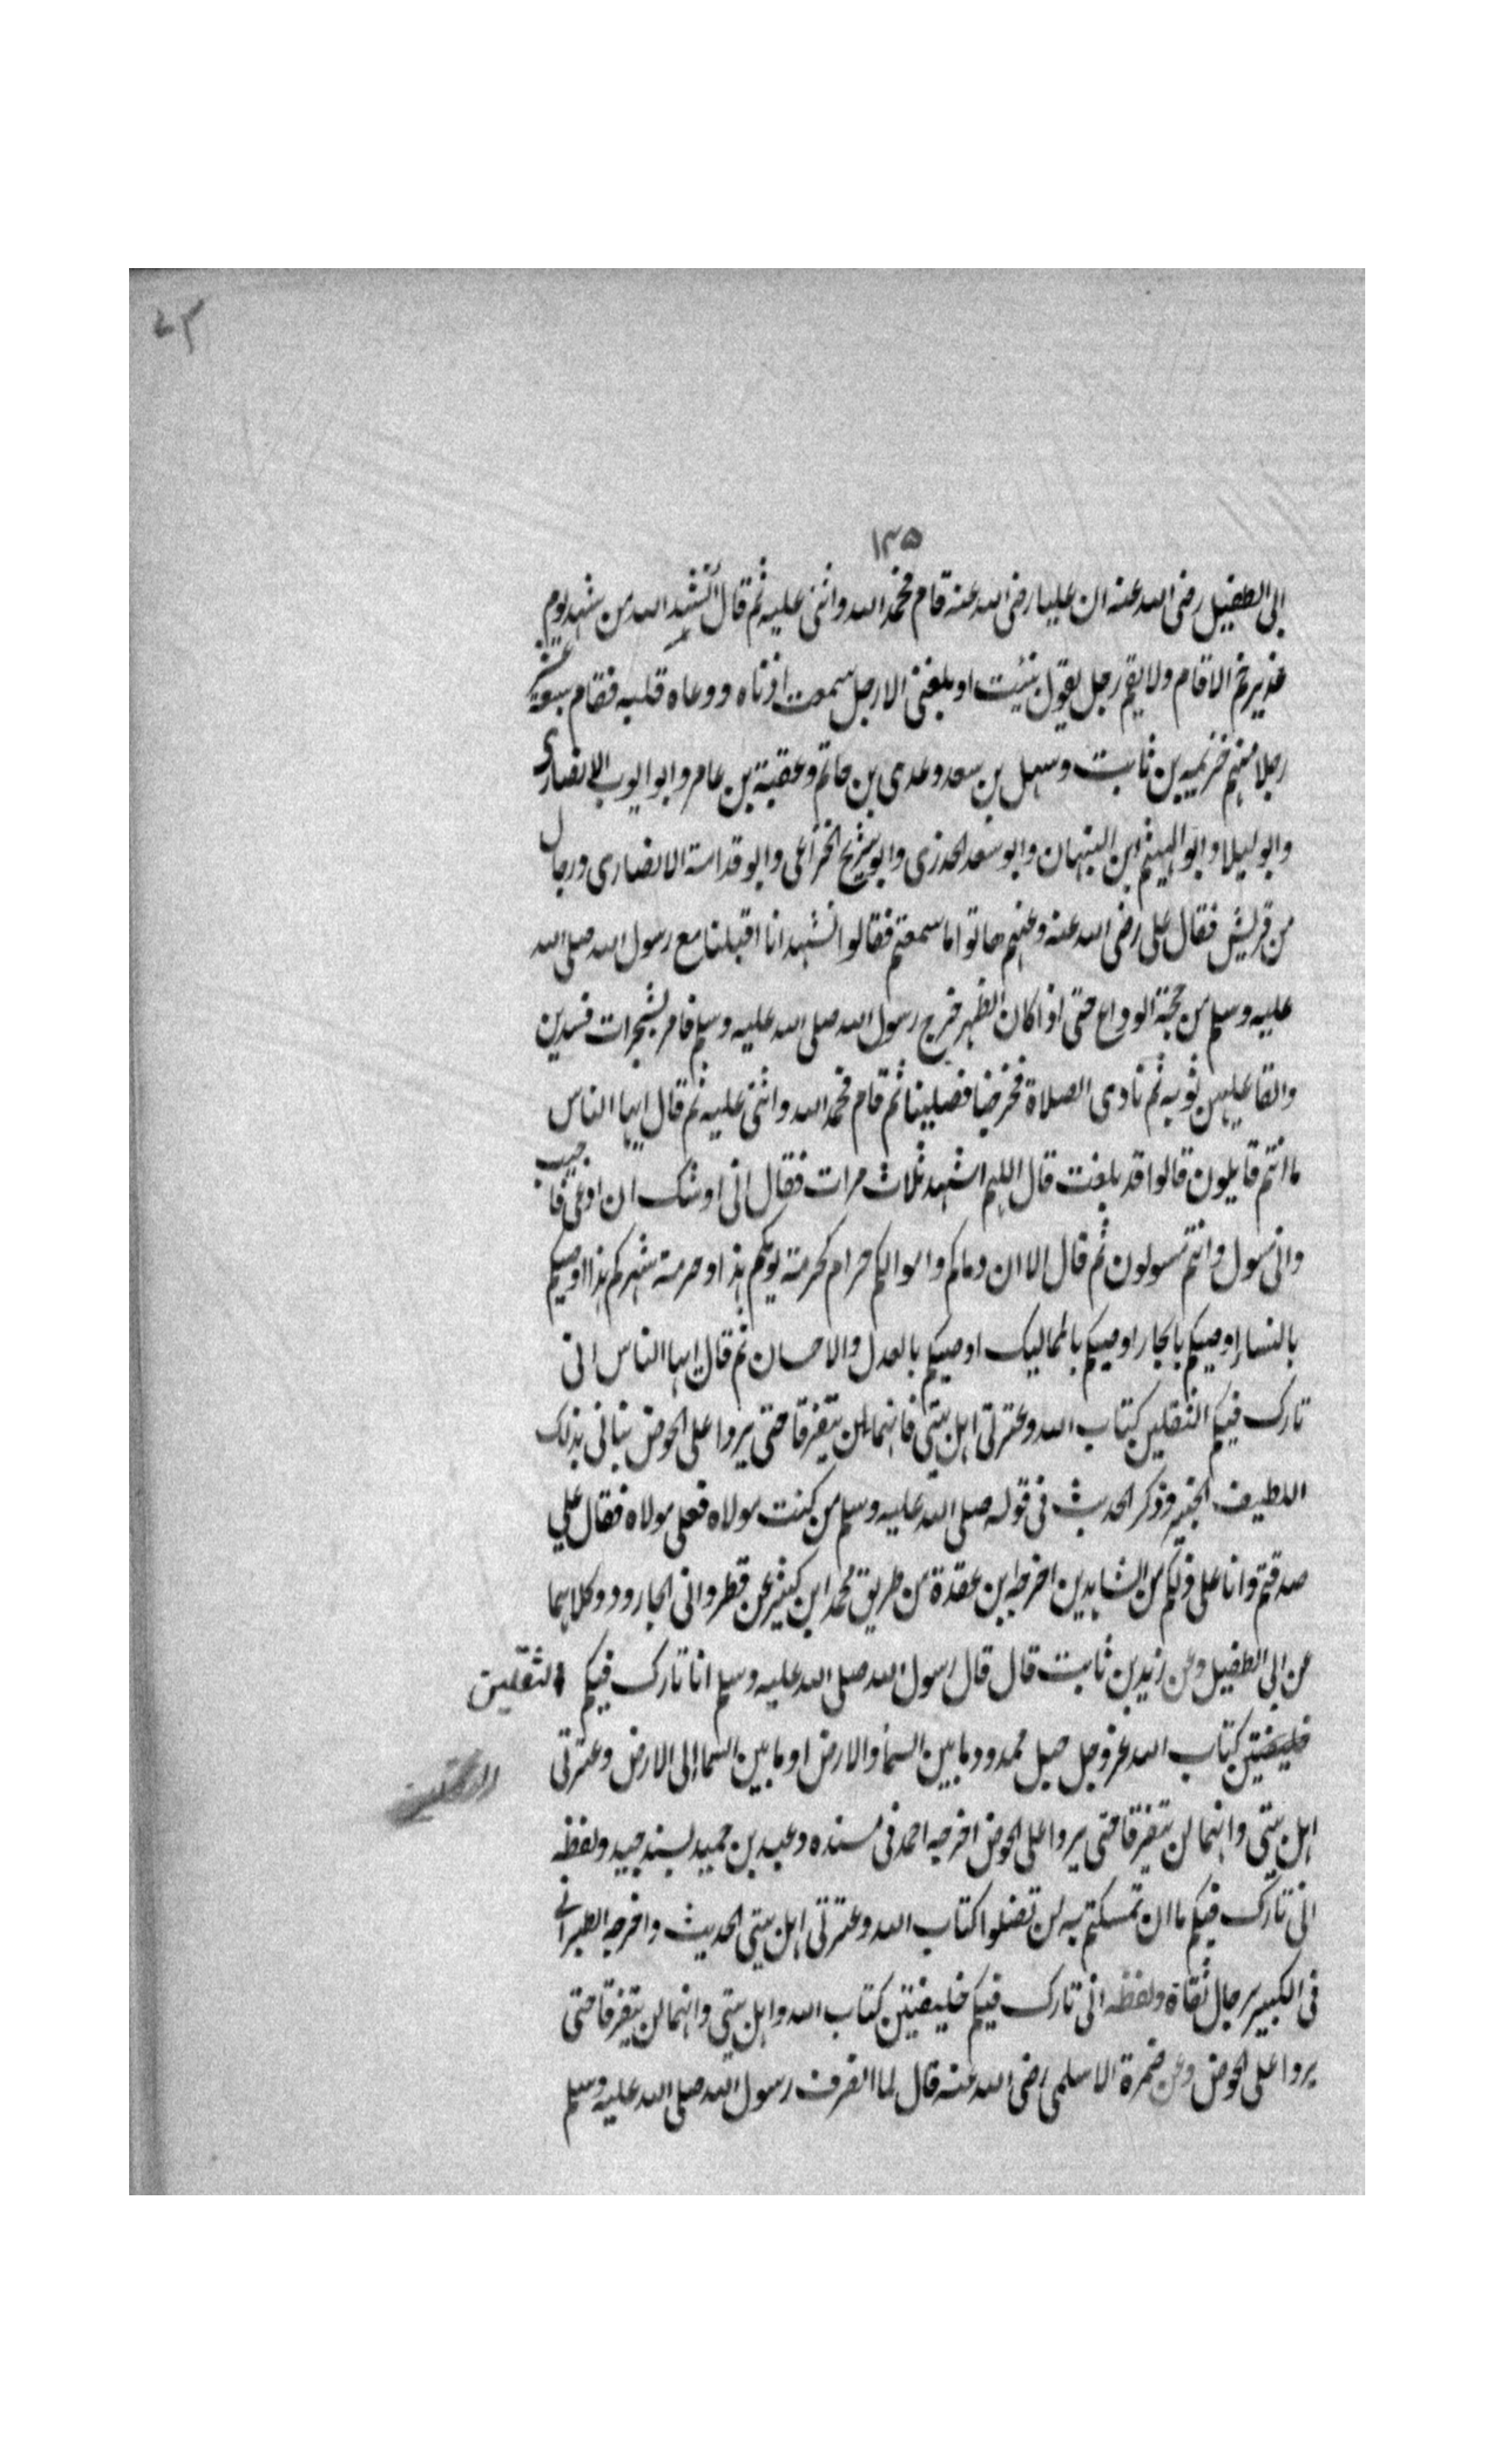 ١٣٥
ابى الطفيل رضى الله عنه ان عليا رضى الله عنه قام فحمد الله واثنى عليه ثم قال انشد الله من شهد يوم
غدير خم الا قام ولا يقم رجل يقول نبئت او بلغنى الا رجل سمعت اذناه ووعاه قلبه فقام سبعة عشر
رجلا منهم خزيمه بن ثابت وسهل بن سعد وعدى بن حاتم وعقبة بن عامر وابو ايوب الانصارى
وابو ليلا وابو الهيثم ابن التيهان وابو سعد الخدرى وابو شريح الخزاعى وابو قدامة الانصارى ورجال
من قريش فقال على رضى الله عنه وعنهم هاتوا ما سمعتم فقالوا نشهد انا اقبلنا مع رسول الله صلى الله
عليه وسلم من حجة الوداع حتى اذا كان الظهر خرج رسول الله صلى الله عليه وسلم فامر بشجرات فسدين
والقا عليهن ثوبه ثم نادى الصلاة فخرجنا فصلينا ثم قام فحمد الله واثنى عليه ثم قال ايها الناس
ما انتم قايلون قالوا قد بلغت قال اللهم اشهد ثلاث مرات فقال انى اوشك ان ادعى فاجيب
وانى مسول وانتم مسولون ثم قال الا ان دماكم واموالكم حرام كحرمة يومكم هذا وحرمة شهركم هذا اوصيكم
بالنساء اوصيكم بالجار اوصيكم بالمماليك اوصيكم بالعدل والاحسان ثم قال ايها الناس انى
تارك فيكم الثقلين كتاب الله وعترتى اهل بيتى فانهما لن يتفرقا حتى يردا على الحوض نبانى بذلك
اللطيف الخبير وذكر الحديث فى قوله صلى الله عليه وسلم من كنت مولاه فعلى مولاه فقال على
صدقتم وانا على ذلكم من الشاهدين اخرجه ابن عقدة من طريق محمد ابن كثير عن فطر وابى الجارود وكلاهما
عن ابى الطفيل وعن زيد بن ثابت قال قال رسول الله صلى الله عليه وسلم انا تارك فيكم الثقلين
خليفتين كتاب الله عز وجل حبل ممدود ما بين السما والارض او ما بين السما الى الارض وعترتى
اهل بيتى وانهما لن يتفرقا حتى يردا على الحوض اخرجه احمد فى مسنده وعبد بن حميد بسند جيد ولفظه
انى تارك فيكم ما ان تمسكتم به لن تضلوا كتاب الله وعترتى اهل بيتى الحديث واخرجه الطبرانى
فى الكبير برجال ثقاة ولفظه انى تارك فيكم خليفتين كتاب الله واهل بيتى وانهما لن يتفرقا حتى
يردا على الحوض وعن ضمرة الاسلمى رضى الله عنه قال لما انصرف رسول الله صلى الله عليه وسلم